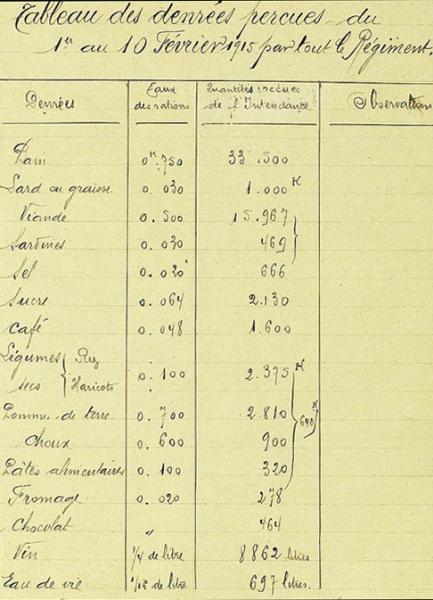 Tableau des denrées perçues du
1er au 10 Février 1915 par tout le Régiment.
Denrées Taux des rations Quantités reçues de l'Intendance Observations
Pain 0K.750 33.500
Lard ou graisse 0.030 1.000K
Viande 0.500 15.967
Sardines 0.030 469
Sel 0.020 666
Sucre 0.064 2.130
Café 0.048 1.600
Légumes secs { Riz Haricots 0.100 2.375K
Pommes de terre 0.700 2.810
Choux 0.600 900
Pâtes alimentaires 0.100 320
Fromage 0.020 278
Chocolat " 464
Vin 1/4 de litre 8862 litres
Eau de vie 1/16 de litre 697 litres.